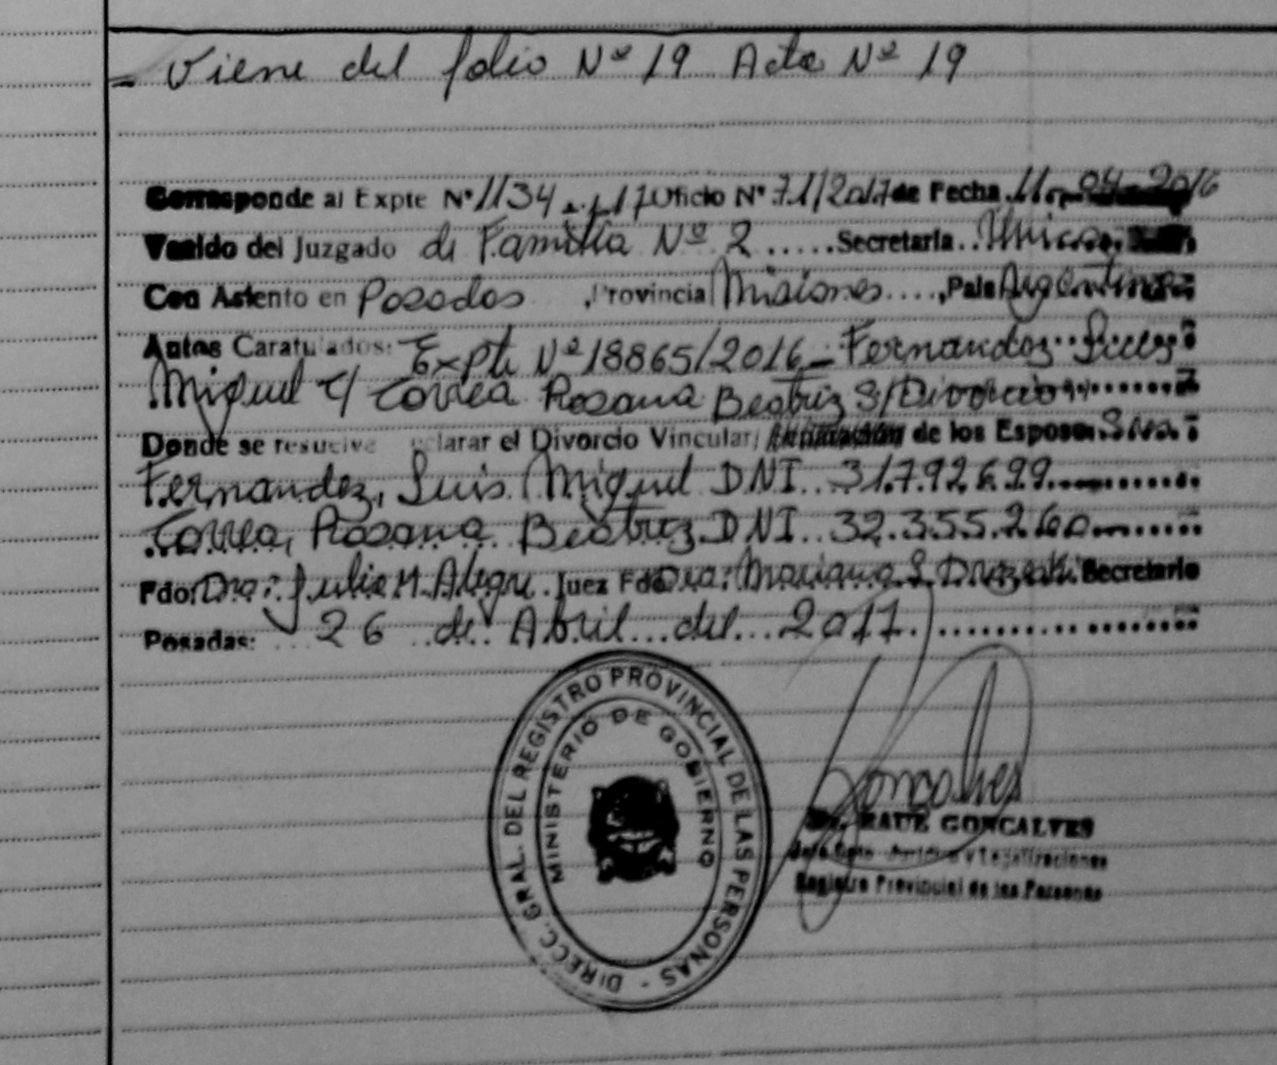 - Viene del folio Nº 19 Acta Nº 19
Corresponde al Expte Nº 1134 - 17 Oficio Nº 71/2017 de Fecha 11-04-2016
Venido del Juzgado de Familia Nº 2 ..... Secretaria .. Unica
Con Asiento en Posadas , Provincia Misiones ...., Pais Argentina
Autos Caratulados: Expte Nº 18865/2016 - Fernandez Luis
Miguel c/ Correa Rosana Beatriz S/ Divorcio
Donde se resuelve clarar el Divorcio Vincular/ de los Esposos
Fernandez, Luis Miguel DNI 31.792.699
Correa, Rosana Beatriz DNI 32.355.260
Fdo: Dra: Julia M. Alegre. Juez Fdo Dra: Mariana S. Secretario
Posadas: ... 26 de Abril del 2017.
DIRECC. GRAL. DEL REGISTRO PROVINCIAL DE LAS PERSONAS -
MINISTERIO DE GOBIERNO
Goncalves
RAUL GONCALVES
Jefe Dpto. Juridico y Legalizaciones
Registro Provincial de las Personas